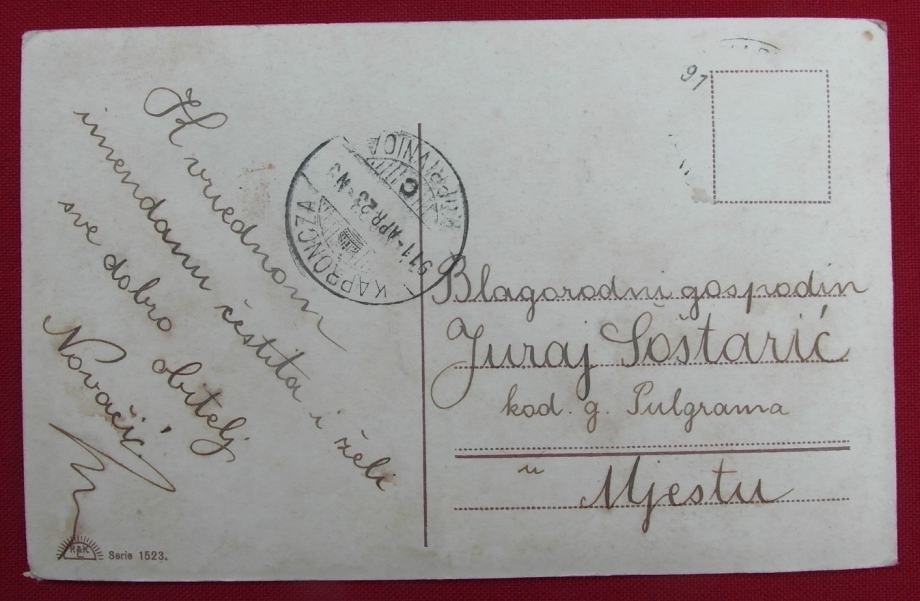 K vriednom
imendanu čestita i želi
sve dobro obitelj
Novačić!
KAPRONCZA
911-APR 23-N8
C
KOPRIVNICA
91
Blagorodni gospodin
Juraj Šoštarić
kod. g. Pulgrama
u Mjestu
R&K
Serie 1523.